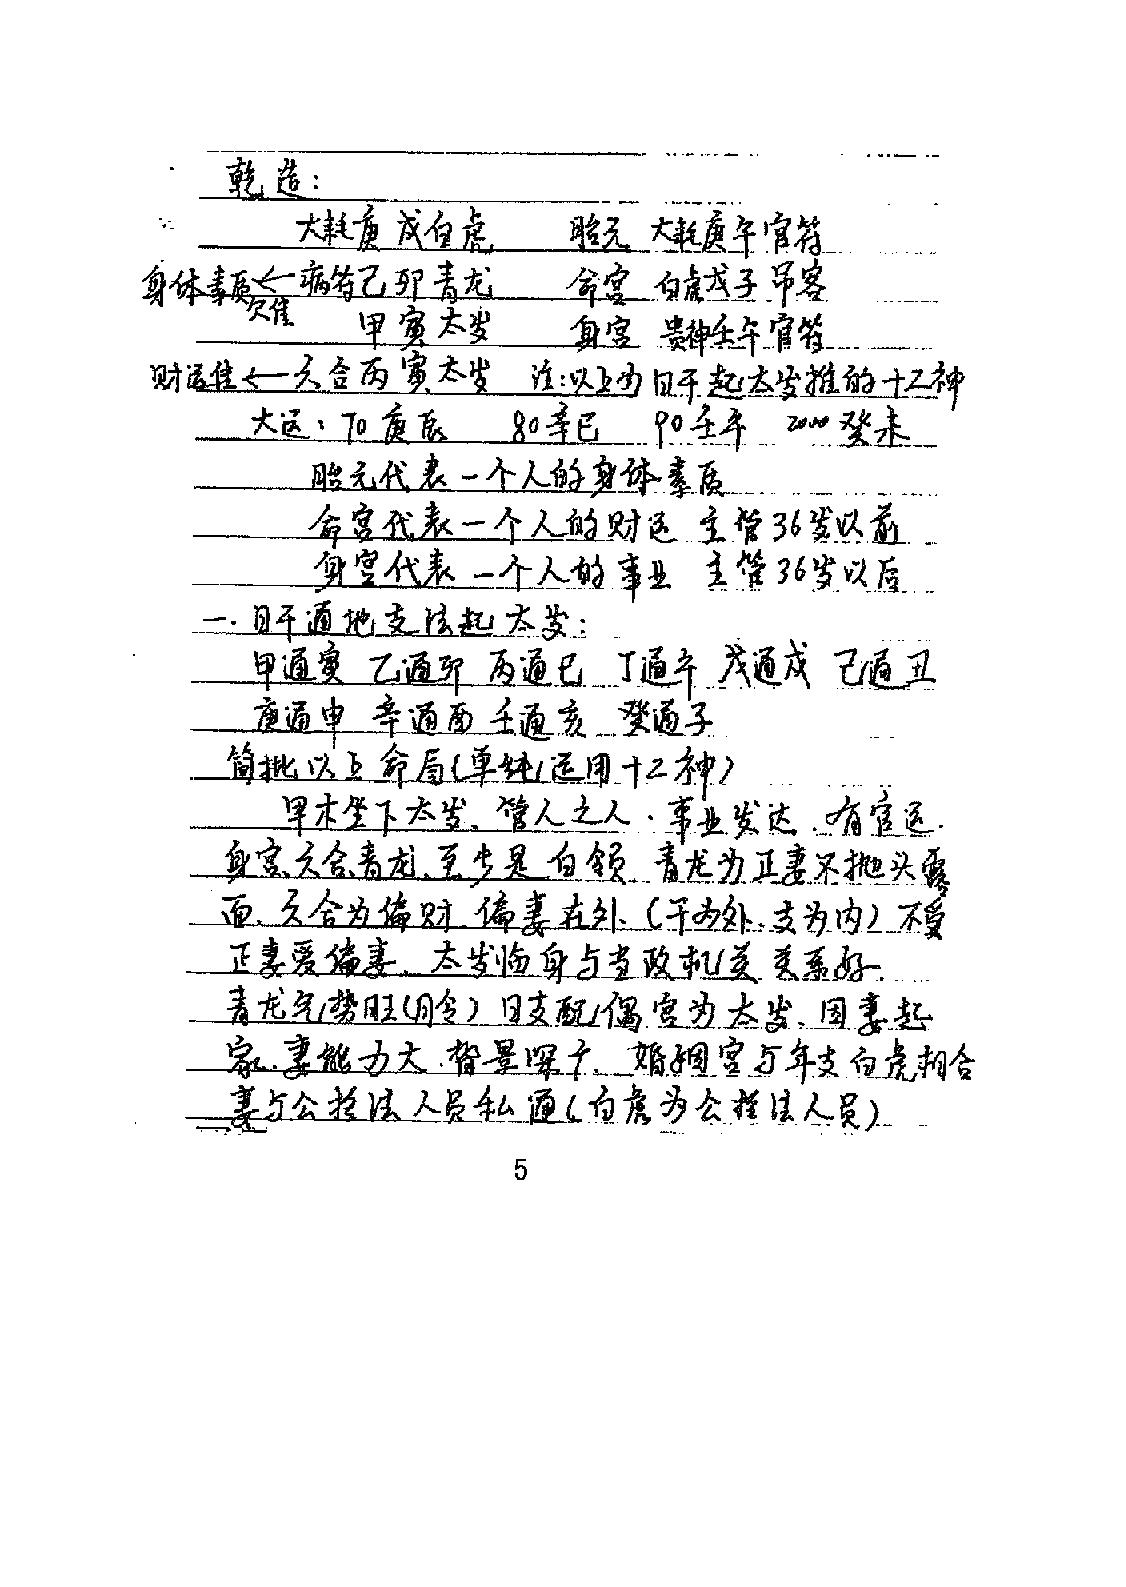 乾造：
大耗庚戌白虎 胎元 大耗庚午官符
身体素质欠佳←病符己卯青龙 命宫 白虎戊子吊客
甲寅太岁 身宫 贵神壬午官符
财运佳←六合丙寅太岁 注：以上为日干起太岁推的十二神
大运：70庚辰 80辛巳 90壬午 2000癸未
胎元代表一个人的身体素质
命宫代表一个人的财运 主管36岁以前
身宫代表一个人的事业 主管36岁以后
一．日干通地支法起太岁：
甲通寅 乙通卯 丙通巳 丁通午 戊通戌 己通丑
庚通申 辛通酉 壬通亥 癸通子
简批以上命局（单纯运用十二神）
甲木坐下太岁、管人之人．事业发达．有官运．
身宫、六合、青龙、至少是白领 青龙为正妻不抛头露
面、六合为偏财 偏妻在外、（干为外、支为内）不爱
正妻爱偏妻、太岁临身与当政机关关系好．
青龙气势旺（月令）日支配偶宫为太岁、因妻起
家．妻能力大．背景深于、婚姻宫与年支白虎相合
妻与公检法人员私通（白虎为公检法人员）
5